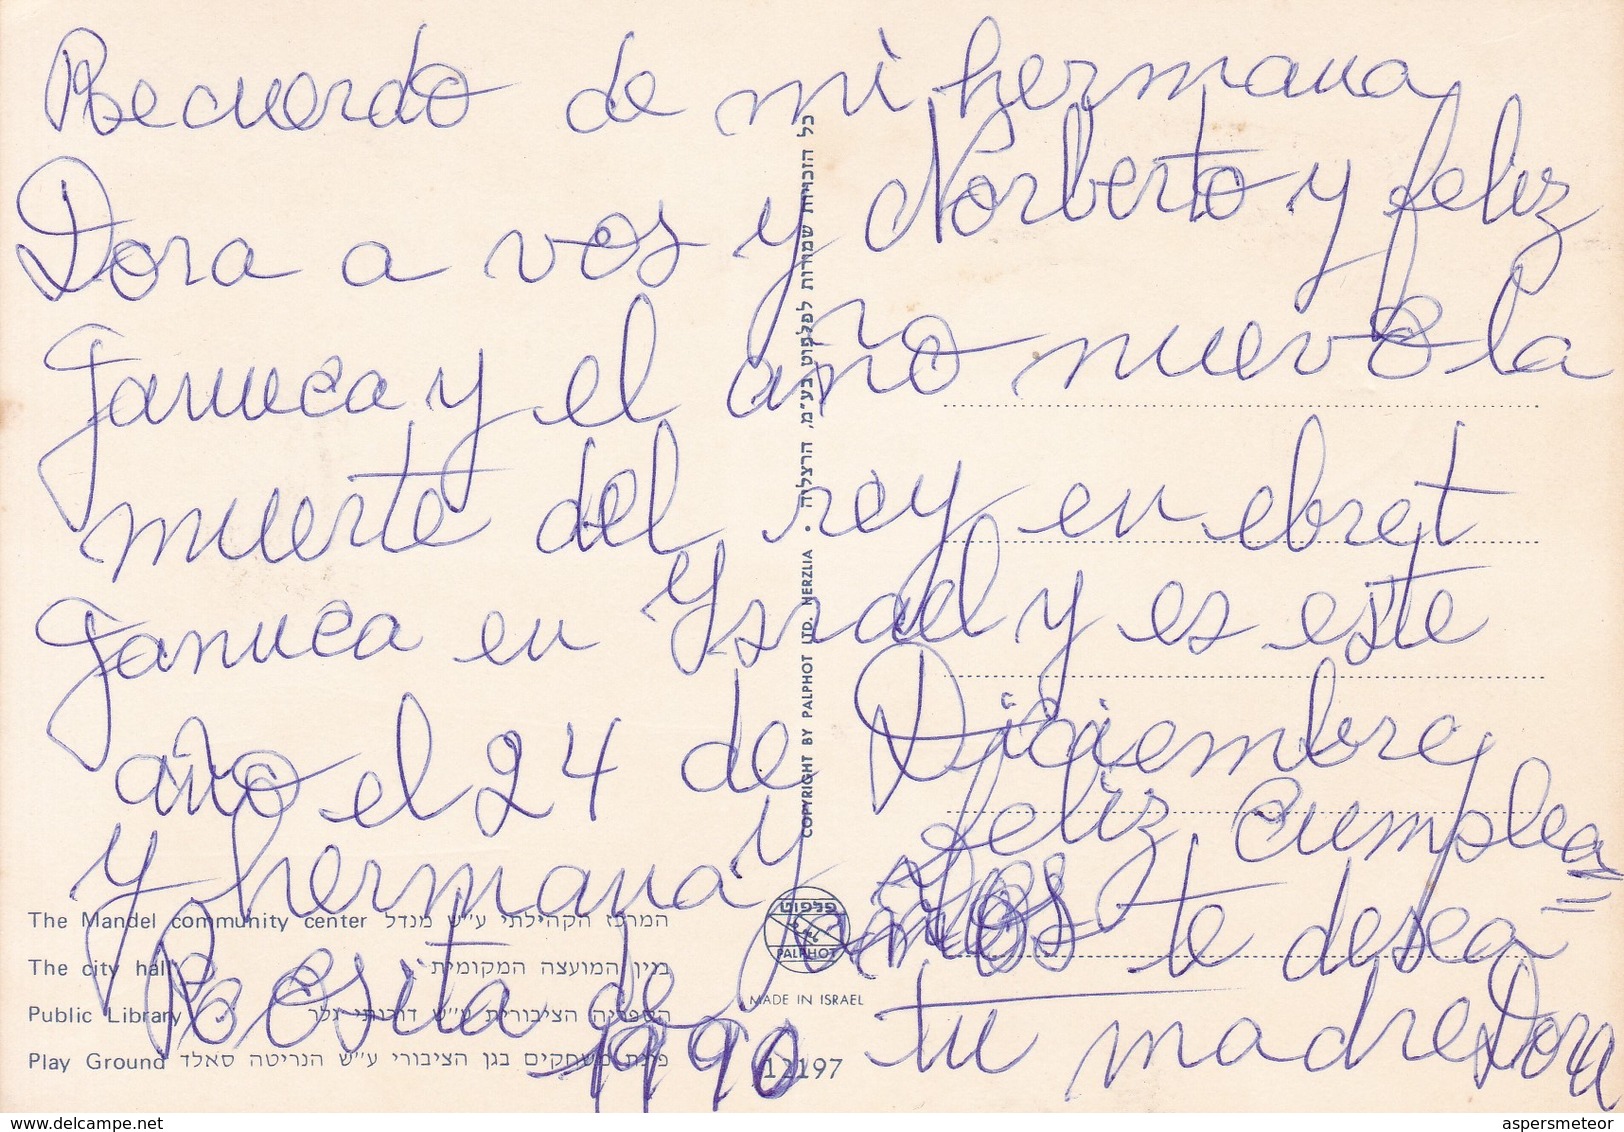 Recuerdo de mi hermana
Dora a vos y Norberto y feliz
Januca y el año nuevo la
muerte del rey en ebret
Januca en Ysrael y es este
año el 24 de Diciembre
y hermana y feliz cumplea=
Rosita de años te desea=
1990 tu madre Dora
כל הזכויות שמורות לפלפוט בע״מ, הרצליה • COPYRIGHT BY PALPHOT LTD. HERZLIA
The Mandel community center המרכז הקהילתי ע״ש מנדל
The city hall בנין המועצה המקומית
Public Library הספריה הציבורית ע״ש
Play Ground פינת משחקים בגן הציבורי ע״ש הנריטה סאלד
פלפוט
PALPHOT
MADE IN ISRAEL
12197
delcampe.net
aspersmeteor